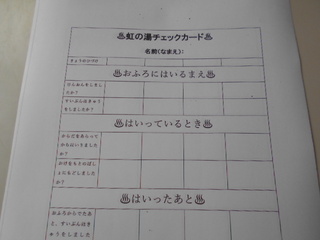 ♨虹の湯チェックカード♨
名前(なまえ):
きょうのひづけ
♨おふろにはいるまえ♨
けんおんをしまし
たか?
すいぶんほきゅう
をしましたか?
♨はいっているとき♨
からだをあらって
からはいりました
か?
おけをもとのばし
ょにもどしました
か?
♨はいったあと♨
おふろからでたあ
と、すいぶんほき
ゅうをしました